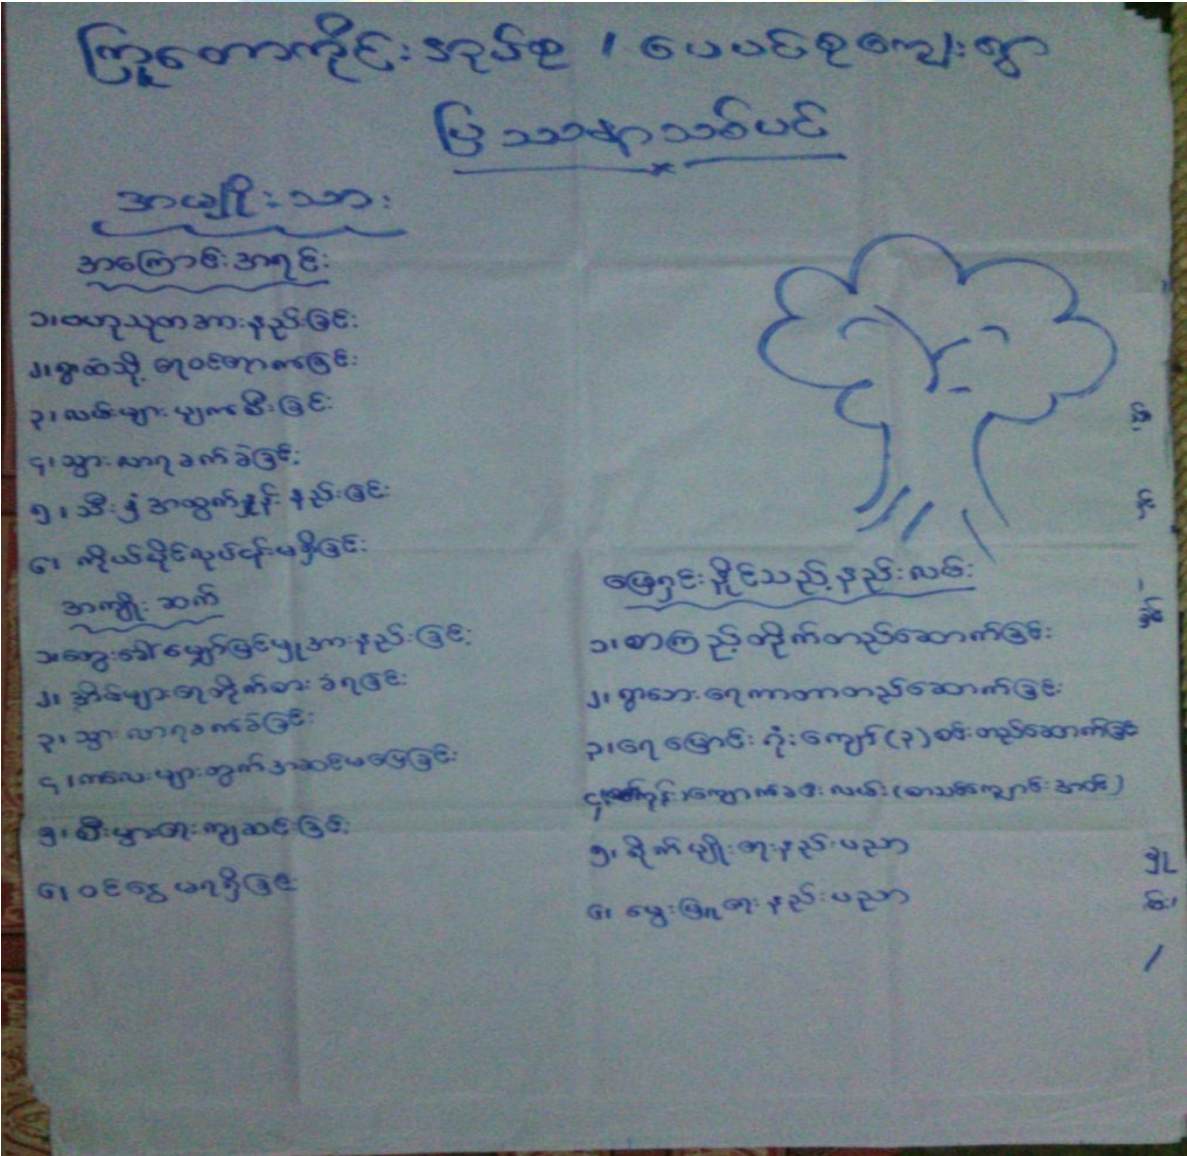 ကြူတောကိုင်းအုပ်စု / ပေပင်စုကျေးရွာ
ပြဿနာသစ်ပင်
အမျိုးသား
အကြောင်းအရင်း
၁၊ ဗဟုသုတအားနည်းခြင်း
၂၊ ရွာထဲသို့ ရေဝင်ရောက်ခြင်း
၃၊ လမ်းများပျက်စီးခြင်း
၄၊ သွားလာရခက်ခဲခြင်း
၅၊ သီးနှံအထွက်နှုန်းနည်းခြင်း
၆၊ ကိုယ်ပိုင်လုပ်ငန်းမရှိခြင်း
အကျိုးဆက်
၁၊ တွေးခေါ်မျှော်မြင်မှုအားနည်းခြင်း
၂၊ အိမ်များရေတိုက်စားခံရခြင်း
၃၊ သွားလာရခက်ခဲခြင်း
၄၊ ကလေးများတွက်အဆင်မပြေခြင်း
၅၊ စီးပွားရေးကျဆင်းခြင်း
၆၊ ဝင်ငွေမရရှိခြင်း
ဖြေရှင်းနှိုင်သည့်နည်းလမ်း
၁၊ စာကြည့်တိုက်တည်ဆောက်ခြင်း
၂၊ ရွာဘေးရေကာတာတည်ဆောက်ခြင်း
၃၊ ရေမြောင်းကူးကျော် (၃) စင်းတည်ဆောက်ခြင်း
၄၊ ကျောက်ခင်းလမ်း (စာသင်ကျောင်းအဝင်)
၅၊ စိုက်ပျိုးရေးနည်းပညာ
၆၊ မွေးမြူရေးနည်းပညာ